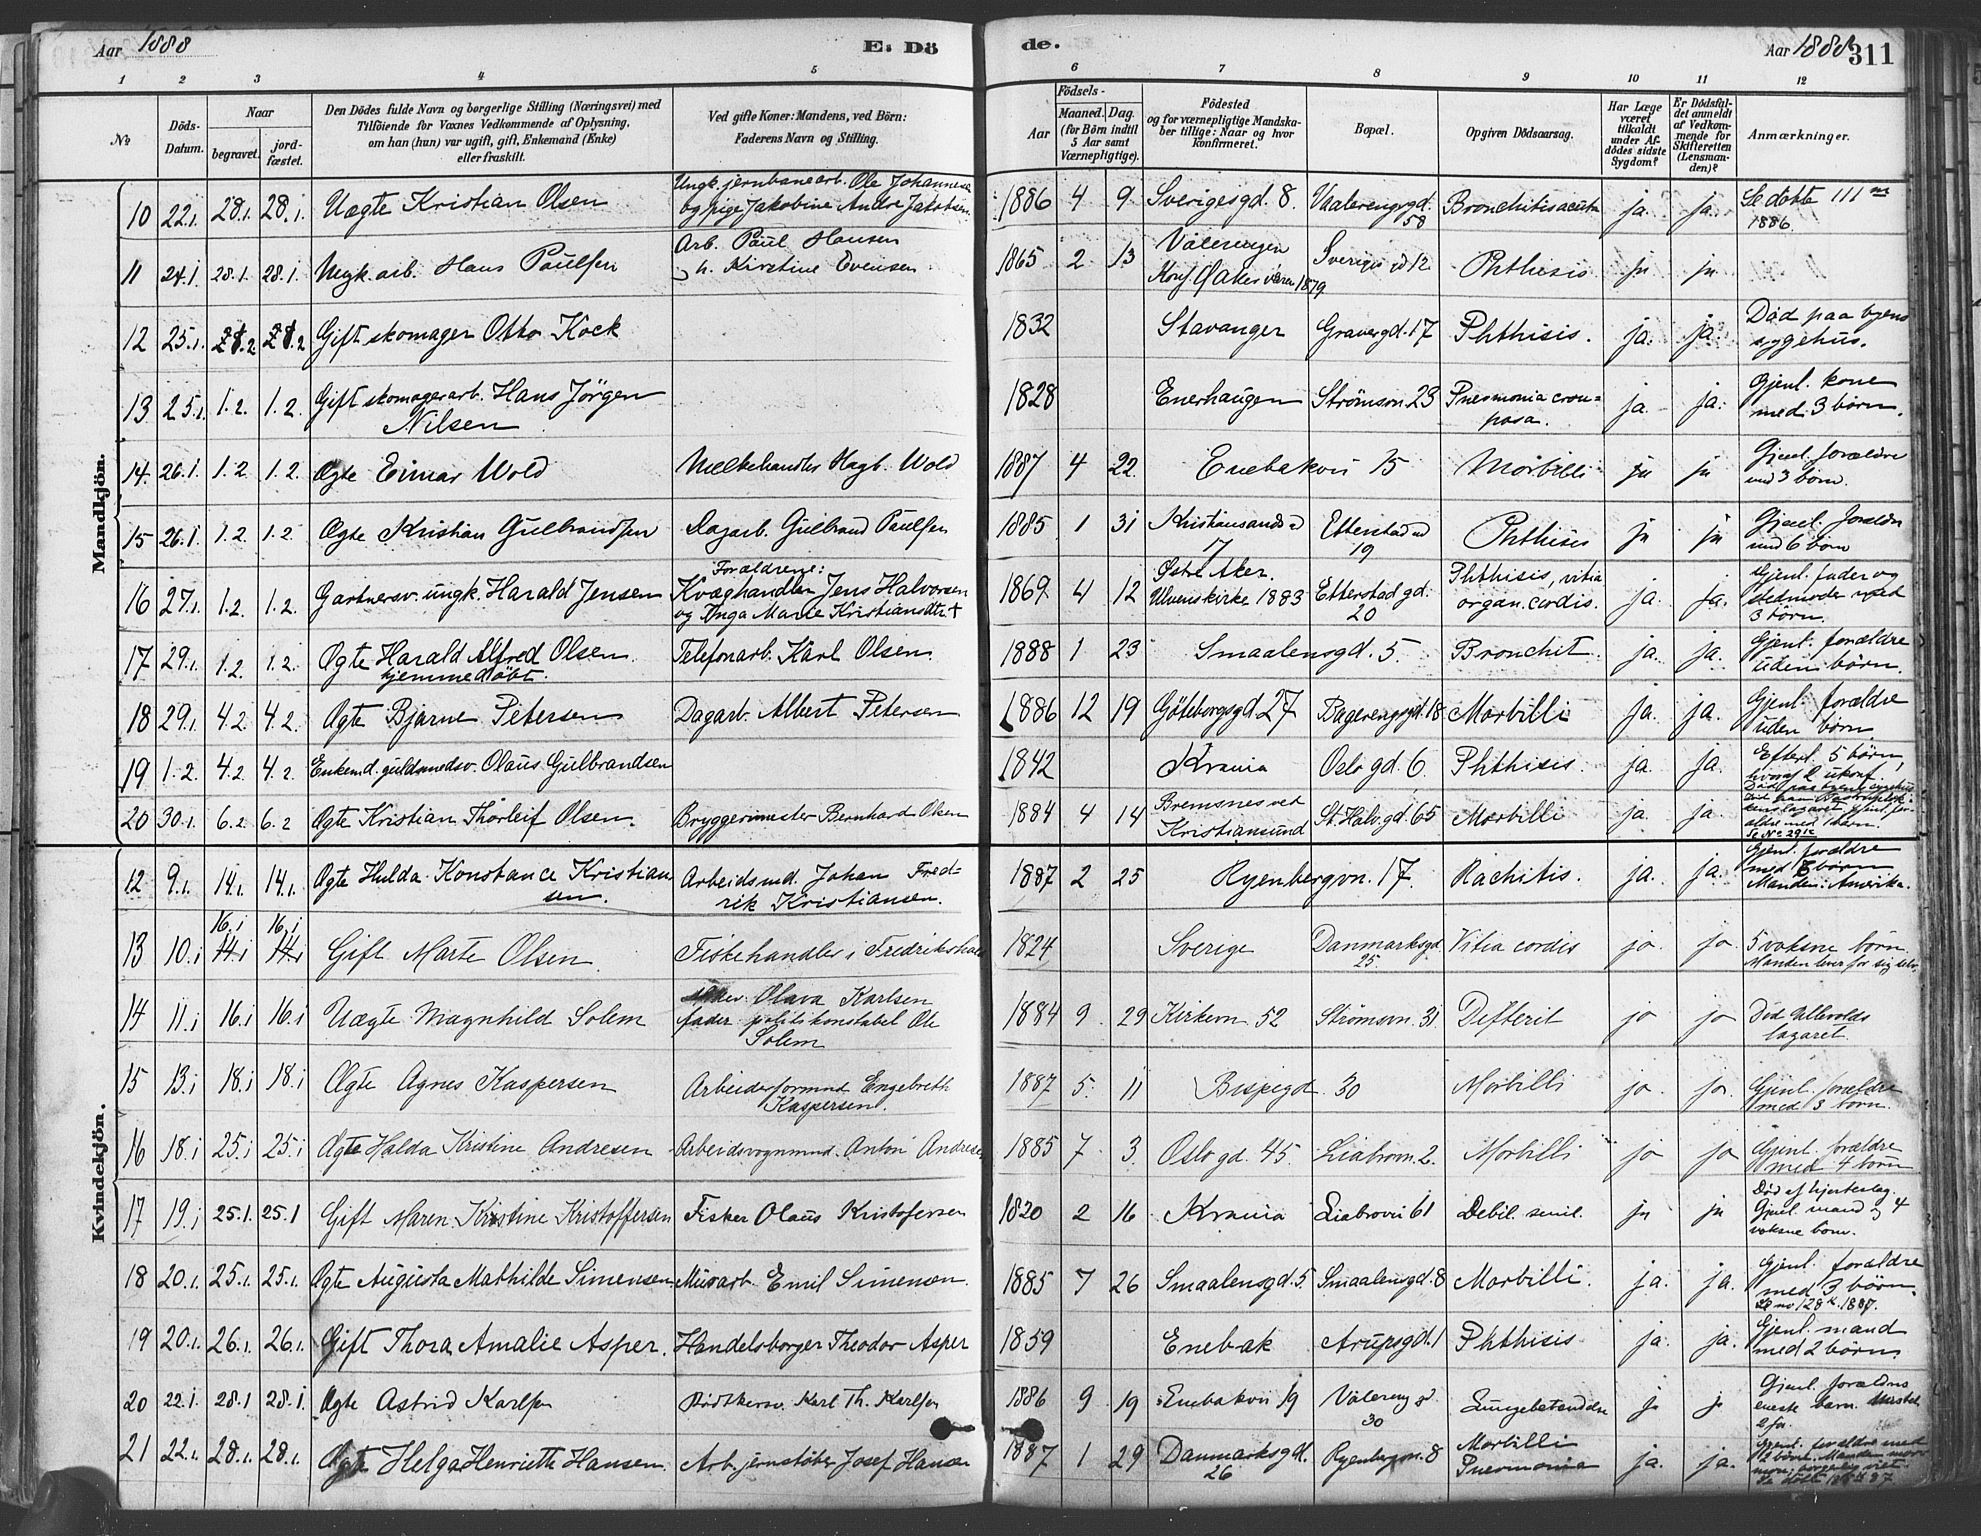 Aar 1888
E. Dö
de.
Aar 1888
311
1 2 3 4 5 6 7 8 9 10 11 12
№
Döds-
Datum.
Naar
begravet.
jord-
fæstet.
Den Dödes fulde Navn og borgerlige Stilling (Næringsvei) med
Tilföiende for Voxnes Vedkommende af Oplysning,
om han (hun) var ugift, gift, Enkemand (Enke)
eller fraskilt.
Ved gifte Koner: Mandens, ved Börn:
Faderens Navn og Stilling.
Födsels-
Aar
Maaned.
Dag.
(for Börn indtil
5 Aar samt
Værnepligtige).
Födested
og for værnepligtige Mandska-
ber tillige: Naar og hvor
konfirmeret.
Bopæl.
Opgiven Dödsaarsag.
Har Læge
været
tilkaldt
under Af-
dödes sidste
Sygdom?
Er Dödsfal-
det anmeldt
af Vedkom-
mende for
Skifteretten
(Lensman-
den)?
Anmærkninger.
Mandkjön.
10 22.1. 28.1. 28.1. Uægte Kristian Olsen Ungk. jernbanearb. Ole Johannesen og pige Jakobine Andrea Jakobsen 1886 4 9 Sverigesgd. 8. Vaalerengsgd. 58 Bronchitis acuta ja. ja. Se døbte 111 1886.
11 24.1. 28.1. 28.1. Ungk. arb. Hans Paulsen Arb. Paul Hansen h. Kirstine Evensen 1865 2 13 Vålerengen Konf. Ø Aker våren 1879 Sverigesgd 12 Phthisis ja ja
12 25.1. 28.2. 28.2 Gift skomager Otto Kock 1832 Stavanger Gravergd. 17 Phthisis. ja. ja. Død paa byens sygehus.
13 25.1. 1.2. 1.2. Gift skomagerarb. Hans Jörgen Nilsen 1828 Enerhaugen Strömsvn. 23 Pneumonia crouposa. ja. ja. Gjenl. kone med 3 börn.
14. 26.1. 1.2. 1.2. Ægte Einar Wold Melkehandler Hagb. Wold 1887 4 22. Enebakvn 15 Morbilli ja ja Gjenl. forældre med 3 børn.
15 26.1. 1.2 1.2. Ægte Kristian Gulbrandsen Dagarb. Gulbrand Paulsen 1885 1 31 Kristiansandsgd 7 Etterstadgd 19 Phthisis ja ja Gjenl. forældre med 6 børn
16 27.1. 1.2. 1.2. Gartnersv. ungk. Harald Jensen Forældrene: Kvæghandler Jens Halvorsen og Inga Marie Kristiansdtr. † 1869. 4 12 Østre Aker. Ulvenskirke 1883 Etterstad gd. 20 Phthisis, vitia organ. cordis. ja. ja. Gjenl. fader og stedmoder med 3 börn.
17 29.1. 1.2. 1.2. Ægte Harald Alfred Olsen. hjemmedöbt. Telefonarb. Karl Olsen. 1888 1 23 Smaalensgd. 5. Bronchit. ja. ja. Gjenl. forældre uden börn.
18 29.1. 4.2 4.2. Ægte Bjarne Petersen Dagarb. Albert Petersen 1886 12 19 Göteborgsgd 27 Bagerengsgd. 18 Morbilli ja. ja. Gjenl. forældre uden börn
19 1.2. 4.2 4.2. Enkemd. guldsmedsv. Olaus Gulbrandsen 1842 Krania Oslo gd. 6. Phthisis. ja. ja. Efterl. 5 börn, hvoraf 2 ukonf.
20 30.1. 6.2 6.2 Ægte Kristian Thorleif Olsen. Bryggerimester Bernhard Olsen 1884 4 14 Bremsnes ved Kristiansund St. Halv. gd. 65 Morbilli ja. ja. Se No 29
Kvindekjön.
12 9.1. 14.1. 14.1. Ægte Hulda Konstance Kristiansen. Arbeidsmd. Johan Fredrik Kristiansen. 1887 2 25 Ryenbergvn. 17. Rachitis. ja. ja. Gjenl. forældre med börn Manden i Amerika.
13 10.1 14.1 16.1 14.1 16.1 Gift Marte Olsen Fiskehandler i Fredrikshald 1824 Sverige Danmarksgd 25. Vitia cordis ja ja 5 voksne børn Manden lever for sig selv
14 11.1 16.1 16.1 Uægte Magnhild Solem Olava Karlsen fader politikonstabel Ole Solem 1884 9 29 Kirkevn 52 Strømsvn. 31 Defterit ja ja Død Ullevolds lazaret.
15 13.1 18.1 18.1 Ægte Agnes Kaspersen Arbeiderformnd Engebreth Kaspersen. 1887 5. 11 Bispegd. 30 Morbilli ja ja Gjenl. forældre med 3 børn.
16 18.1 25.1 25.1 Ægte Halda Kristine Andresen Arbeidsvognmnd. Anton Andresen 1885 7 3. Oslo gd. 45. Liabrovn 2. Morbilli ja ja Gjenl. forældre med 4 børn
17 19.1 25.1. 25.1 Gift Maren Kristine Kristoffersen Fisker Olaus Kristofersen 1820 2 16 Krania Liabrovn 61 Debil. senil. ja ja Død af hjerteslag. Gjenl. mand og 4 voksne børn.
18 20.1. 25.1. 25.1. Ægte Augusta Mathilde Simensen Murarb. Emil Simensen. 1885 7 26 Smaalensgd. 5 Smaalensgd. 8 Morbilli. ja. ja. Gjenl. forældre med 3 börn. Se no 128 1887.
19 20.1. 26.1. 26.1. Gift Thora Amalie Asper. Handelsborger Theodor Asper 1859 Enebak Arupsgd. 1 Phthisis ja. ja. Gjenl. mand med 2 börn.
20 22.1. 28.1 28.1. Ægte Astrid Karlsen Bødkersv. Karl Th. Karlsen 1886 9 19 Enebakvn 19 Vålereng gd 30 Lungebetændelse ja ja Gjenl. forældres eneste barn.
21 22.1. 28.1. 28.1. Ægte Helga Henriette Hansen. Arb. jernstöber Josef Hansen 1887 1 29 Danmarksgd. 26 Ryenbergvn. 8 Morbilli Pneumonia ja. ja. Gjenl. forældre med 2 börn.